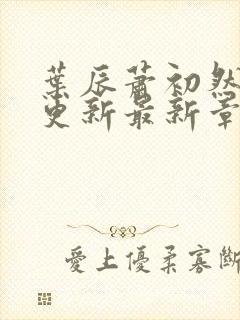 葉辰蕭初然
更新最新章
愛上優柔寡斷